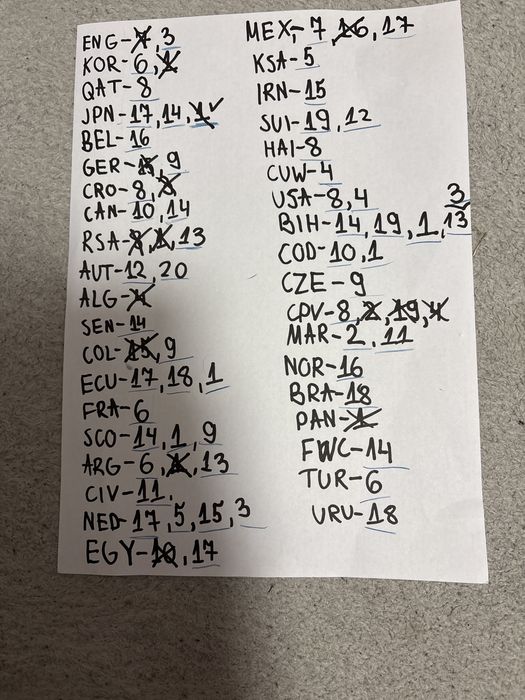 ENG-4, 3
KOR-6, 1
QAT-8
JPN-17, 14, 1✓
BEL-16
GER-15, 9
CRO-8, 2
CAN-10, 14
RSA-9, 1, 13
AUT-12, 20
ALG-4
SEN-14
COL-15, 9
ECU-17, 18, 1
FRA-6
SCO-14, 1, 9
ARG-6, 1, 13
CIV-11.
NED-17, 5, 15, 3
EGY-10, 17
MEX-7, 16, 17
KSA-5
IRN-15
SUI-19, 12
HAI-8
CUW-4
USA-8, 4
3
BIH-14, 19, 1, 13
COD-10, 1
CZE-9
CPV-8, 2, 19, 4
MAR-2, 11
NOR-16
BRA-18
PAN-1
FWC-14
TUR-6
URU-18